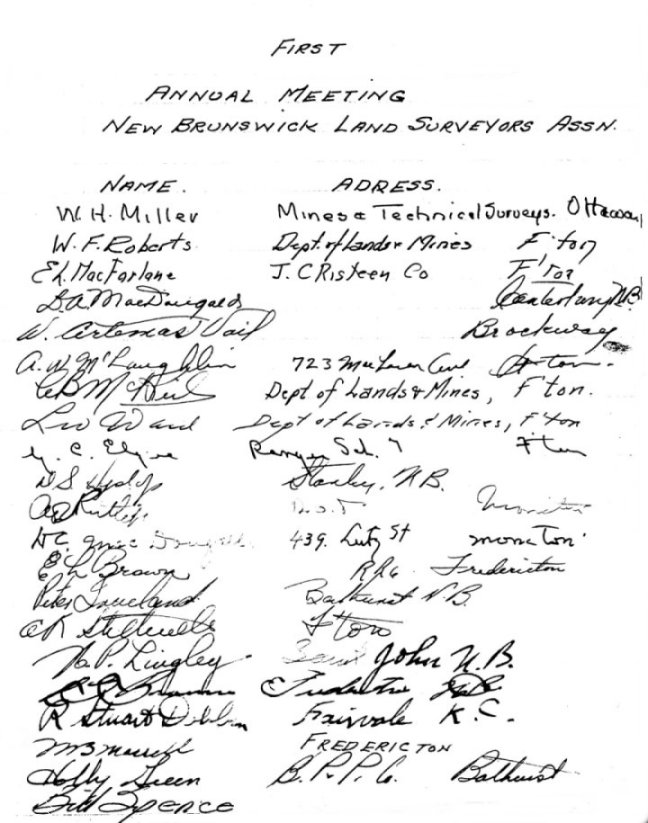 FIRST
ANNUAL MEETING
NEW BRUNSWICK LAND SURVEYORS ASSN.
NAME. ADRESS.
W. H. Miller Mines & Technical Surveys. Ottawa
W. F. Roberts Dept. of Lands & Mines F'ton
E.L. MacFarlane J. C Risteen Co F'ton
D.A. MacDougald Canterbury N.B.
W. Artemas Vail Brockway
A. W McLaughlin 723 F'ton.
McNeil Dept of Lands & Mines, F'ton.
Leo Ward Dept of Lands & Mines, F'ton
C. Ranger Sch. F'ton
D S Stanley, N.B.
Moncton
439. Lutz St Moncton
E L Brown RR6 Fredericton
Peter Loveland Bathurst N B.
F'ton
W. P. Lingley Saint John N.B.
Fredericton
R Stuart Fairvale K. C.
FREDERICTON
Holly Green B. P. P. Co. Bathurst
Bill Spence